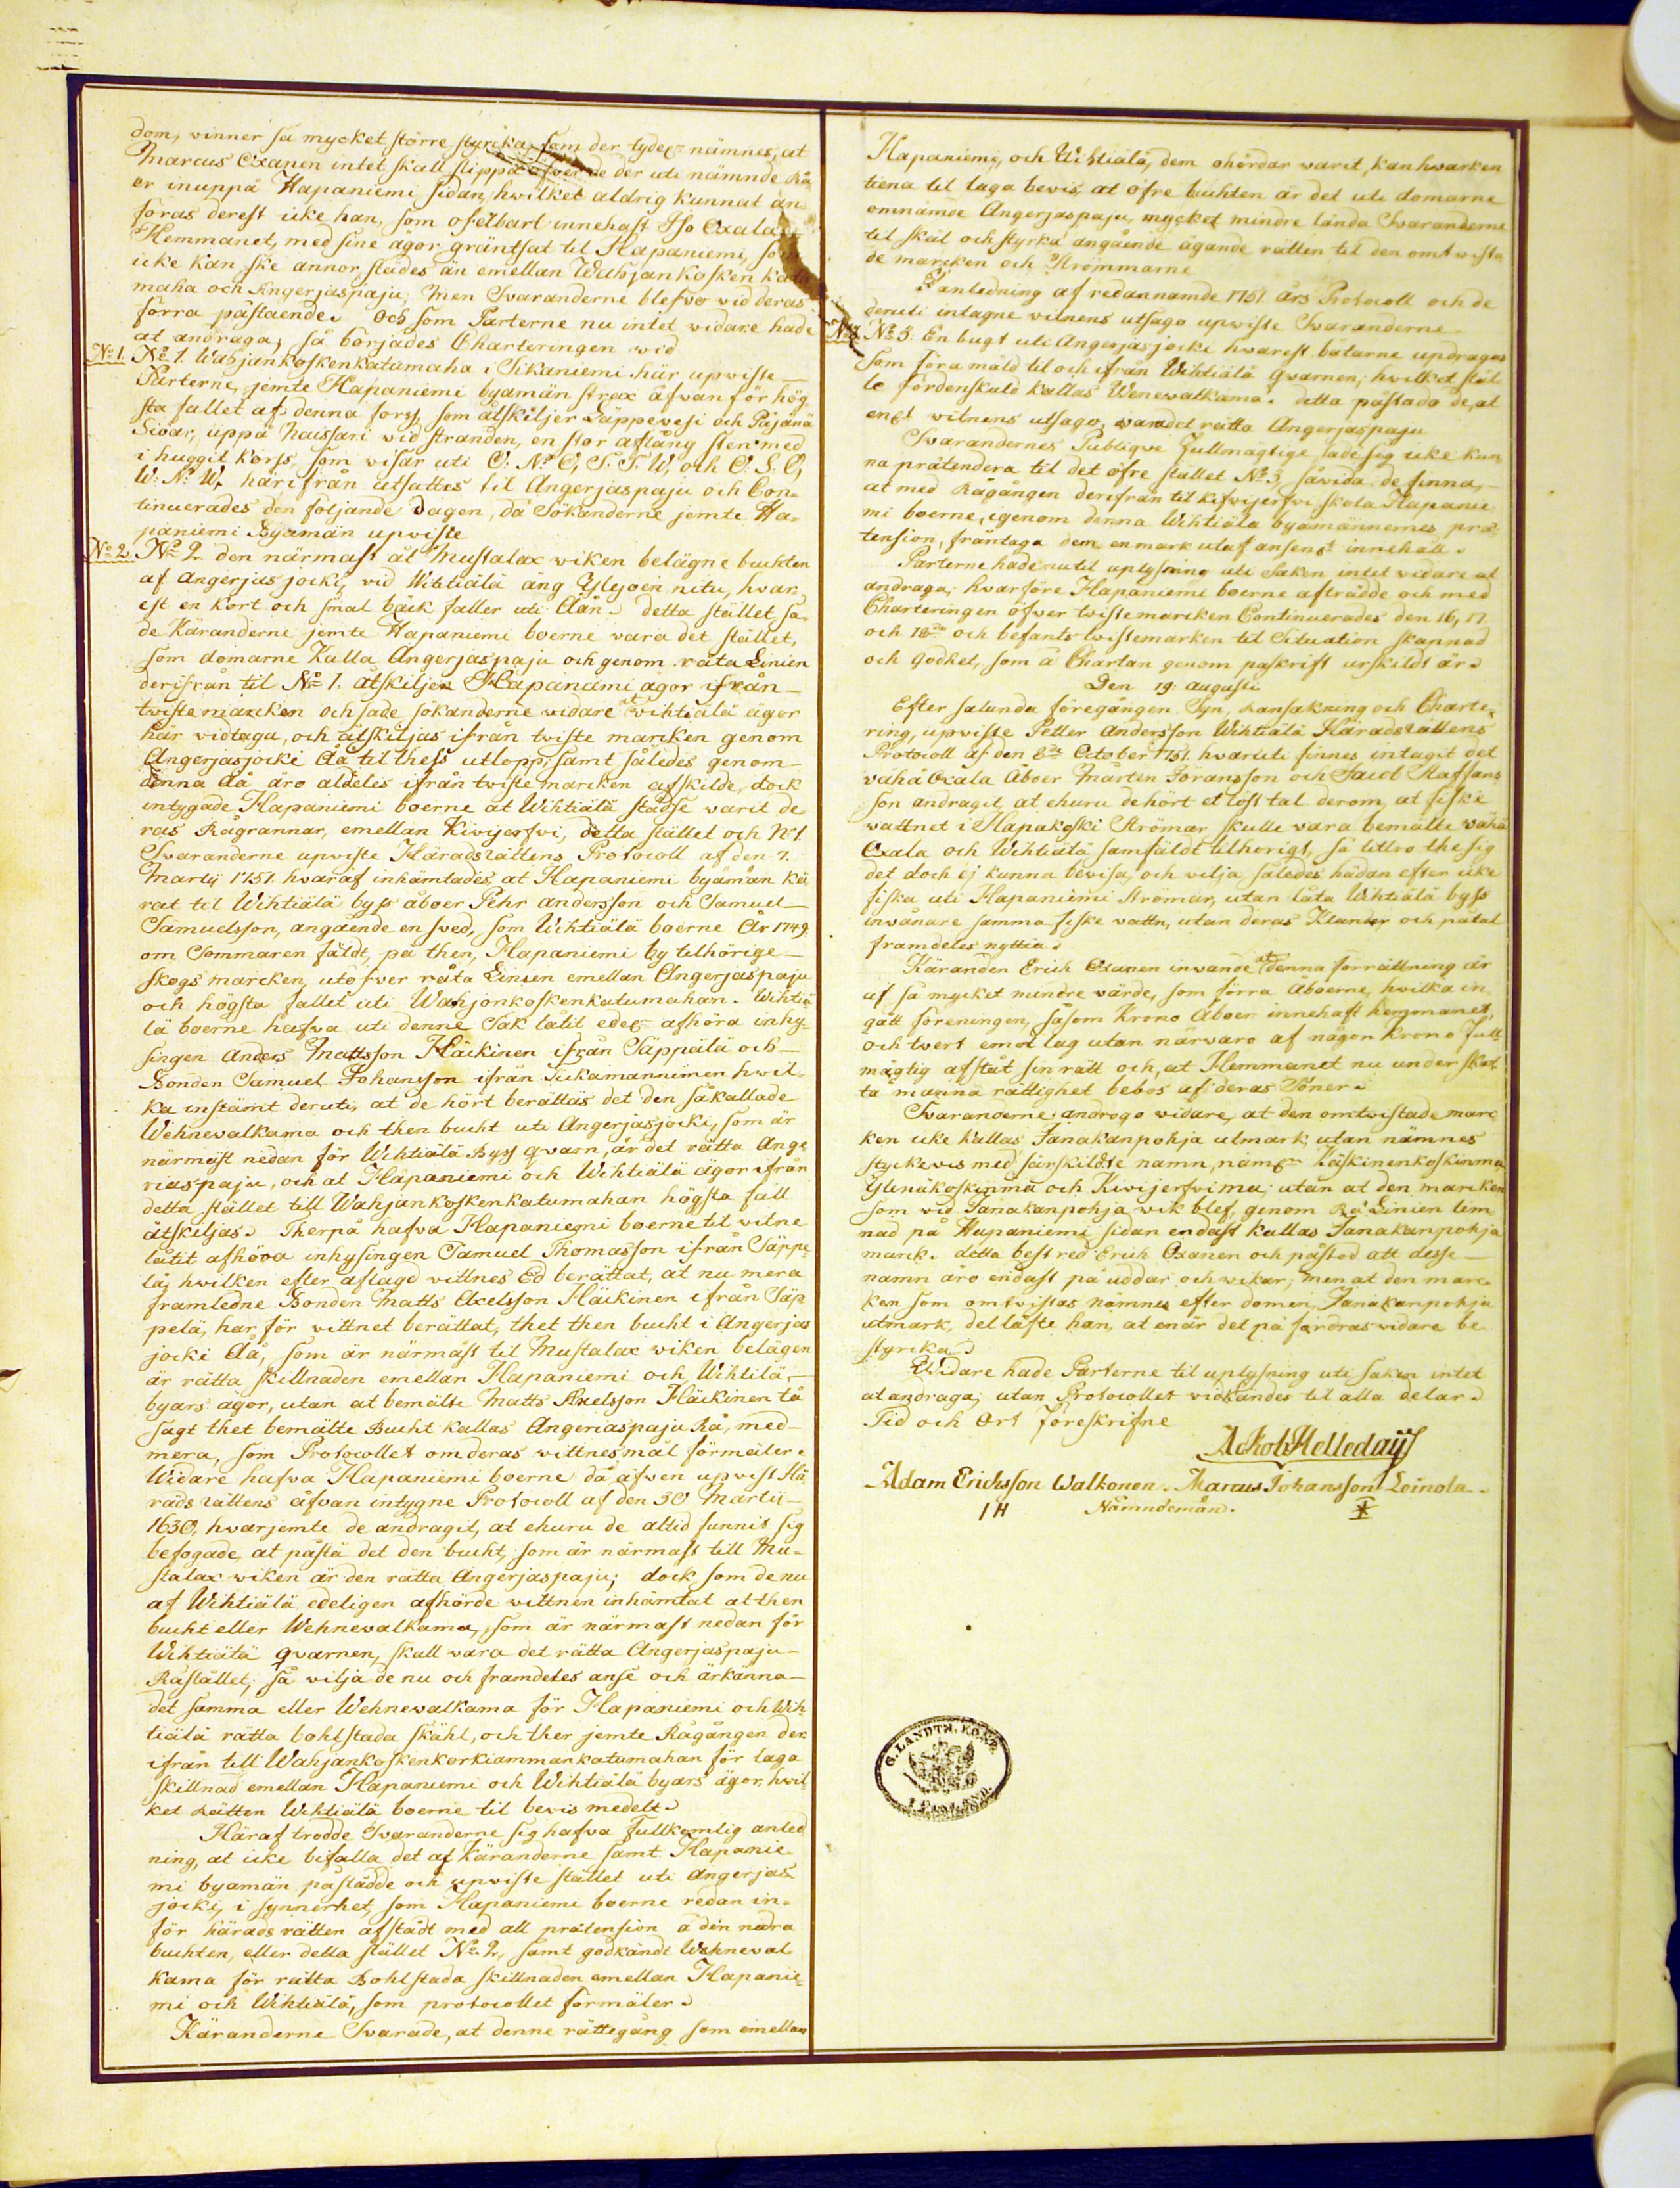 dom, vinner så mycket större styrka, som der tydel. nämnes, at
Marcus Oxanen intet skall slippa öfver de der uti nämnde Rå
er inuppå Hapaniemi sidan, hwilket aldrig kunnat an
föras derest icke han, som ofelbart innehaft Iso Oxala
Hemmanet, med sine ägor gräntsat til Hapaniemi, som
icke kan ske annor städes än emellan Wahjankosken katu
maha och Angerjaspaju; Men Svaranderne blefvo vid deras
förra påstaende. Och som Parterne nu intet widare hade
at andraga, så börjades Charteringen wid
No 1. No 1. Wahjankoskenkatumaha i Sikaniemi. här upwiste
Parterne, jemte Hapaniemi byamän strax äfvan för hög
sta fallet af denna forss, som åtskiljer Läppevesi och Päjänä
Siöar, uppå Haissari vid stranden, en stor aflång sten med
i huggit Korss, som visar uti O. N. O, S. S. W, och O. S. O,
W. N. W, härifrån utsattes til Angerjaspaju och Con-
tinuerades den följande dagen, då Sökanderne jemte Ha-
paniemi Byamän upwiste
No 2. No 2 den närmast åt Mustalax wiken belägne buchten
af Angerjas jocki, vid Wihtiälä äng Ylejoen nitu, hvar
est en kort och smal bäck faller uti Ån. detta stället sa-
de Käranderne jemte Hapaniemi boerne vara det stället,
som domarne Kalla Angerjaspaju och genom räta Linien
derifrån til No 1. åtskiljer Hapaniemi ägor ifrån
twistemarcken och sade sökanderne widare at Wihtiälä ägor
här vidtaga, och åtskiljas ifrån twiste marcken genom
Angerjasjocki Åå til thess utlopp, samt således genom-
denna Åå äro aldeles ifrån twiste marcken afskilde, dock
intygade Hapaniemi boerne at Wihtiälä städse warit de
ras Rågrannar, emellan Kivijerfvi, detta stället och No 1.
Svaranderne upwiste Häradsrättens Protocoll af den 7.
Martij 1751. hwaraf inhämtades, at Hapaniemi byamän kä
rat til Wihtiälä byss åboer Pehr Andersson och Samuel
Samuelsson, angående en sved, som Wihtiälä boerne År 1749.
om Sommaren fäldt, på then, Hapaniemi by tilhörige
skogs marcken, utöfver räta Linien emellan Angerjaspaju
och högsta fallet uti Wahjonkoskenkatumahan. Wihtiä
lä boerne hafva uti denne Sak låtit edel. afhöra inhy-
singen Anders Mattsson Häckinen ifrån Säppälä och
Bonden Samuel Johansson ifrån Sickamanniemen hwil
ka instämt deruti, at de hört berättas det den såkallade
Wehnevalkama och then bucht uti Angerjasjocki, som är
närmast nedan för Wihtiälä Byss qvarn, är det rätta Ange
riaspaju, och at Hapaniemi och Wihtiälä ägor ifrån
detta stället till Wahjankoskenkatumahan högsta fall
åtskiljas. Therpå hafva Hapaniemi boerne til vitne
låtit afhöra inhysingen Samuel Thomasson ifrån Säppe
lä, hwilken efter aflagd vittnes Ed berättat, at nu mera
framledne Bonden Matts Axelsson Häckinen ifrån Säp
pelä, har för vittnet berättat, thet then bucht i Angerjas
jocki Åå, som är närmast til Mustalax wiken belägen
är rätta skillnaden emellan Hapaniemi och Wihtilä-
byars ägor, utan at bemälte Matts Axelsson Häckinen tå
sagt thet bemälte Bucht kallas Angeriaspaju Rå, med
mera, som Protocollet om deras wittnesmål förmäler.
Widare hafva Hapaniemi boerne då äfwen upwist Hä
rads rättens äfvan intygne Protocoll af den 30 Martii
1630, hvarjemte de andragit, at ehuru de altid funnit sig
befogade, at påstå det den bucht, som är närmast till Mu-
stalax wiken är den rätta Angerjaspaju; dock som de nu
af Wihtiälä edeligen afhörde wittnen inhämtat at then
bucht eller Wehnevalkama, som är närmast nedan för
Wihtiälä qvarnen, skall vara det rätta Angerjaspaju-
Råstället; så wilja de nu och framdeles anse och ärkänna
det samma eller Wehnevalkama för Hapaniemi och Wih
tiälä rätta bohlstada skähl, och ther jemte Rågången der
ifrån till Wahjankoskenkorkiammankatumahan för laga
skillnad emellan Hapaniemi och Wihtiälä byars ägor, hwil
ket Rätten Wihtiälä boerne til bevis medelt.
Häraf trodde Svaranderne sig hafva fullkomlig anled
ning, at icke bifalla det af Käranderne samt Hapanie
mi byamän påstådde och upwiste stället uti Angerjas
jocki, i synnerhet, som Hapaniemi boerne redan in-
för härads rätten afstådt med all prætension å den nedra
buchten, eller detta stället No 2, samt godkändt Wehneval
kama för rätta Bohlstada skillnaden emellan Hapanie-
mi och Wihtiälä, som protocollet förmäler.
Käranderne Svarade, at denne rättegång som emellan
Hapaniemi, och Wihtiälä, dem ohördar warit, kan hwarken
tiena til laga bevis, at öfre buchten är det uti domarne
omnämde Angerjaspaju, mycket mindre lända Svaranderne
til skäl och styrka angående ägande rätten til den omtwista
de marcken och Strömmarne
I anledning af redannamde 1751. års Protocoll och de
deruti intagne vitnens utsago upwiste Svaranderne
No 3. No 3. En bugt uti Angerjasjocki hwarest båtarne updragas
som föra mäld til och ifrån Wihtiälä qwarnen, hwilket stäl
le fördenskuld kallas Wenewalkama. detta påstodo de, at
enl. witnens utsago, wara det rätta Angerjaspaju
Svarandernes Publiqve Fullmägtige sade sig icke kun
na prætendera til det öfre stället No 3, såwida de finna,
at med Rågången derifrån til Kifwijerfwi skola Hapanie
mi boerne, igenom denna Wihtiälä byamännernes præ
tension, fråntaga dem en mark utaf ansent innehåll.
Parterne hade nu til uplysning uti saken intet vidare at
andraga, hwarföre Hapaniemi boerne afträdde och med
Charteringen öfver twistemarcken Continuerades den 16, 17.
och 18de och befants twistemarken til Situation skapnad
och godhet, som å Chartan genom påskrift urskildt är.
Den 19. Augusti
Efter salunda föregången Syn, Ransakning och Charte-
ring, upwiste Petter Andersson Wihtiälä Häradsrättens
Protocoll af den 8de October 1751. hwaruti finnes intagit det
vähä Oxala Åboer Mårten Göransson och Jacob Staffans
son andragit, at ehuru de hört et löst tal derom, at fiske
wattnet i Hapakoski Strömar skulle vara bemälte wähä
Oxala och Wihtiälä samfäldt tilhörigt, så tiltro the sig
det doch ej kunna bevisa, och wilja således hädan efter icke
fiska uti Hapaniemi Strömar, utan låta Wihtiälä byss
inwånare samma fiske wattn, utan deras Klander och påtal
framdeles nyttia.
Käranden Erich Oxanen inwände at denna förrättning är
af så mycket mindre värde, som förra Åboerne, hwilka in
gått föreningen, såsom Krono Åboer innehaft hemmanet,
och tvert emot lag utan närwaro af någon Krono Full
mägtig afståt sin rätt och, at Hemmanet nu under skat
ta manna rättighet bebos af deras Söner.
Svaranderne androgo widare, at den omtwistade marc
ken icke kallas Janakanpohja utmark, utan nämnes
styckevis med särskildte namn, näml. Käskinenkoskinma
Ylinäkoskinma och Kivijerfvima; utan at den marcken
som vid Janakanpohja wik blef, genom Rå Linien lem
nad på Hapaniemi sidan endast kallas Janakanpohja
marck. detta bestred Erich Oxanen och påstod att desse
namn äro endast på uddar och wikar; men at den marc
ken som omtvistas nämnes efter domen, Janakanpohja
utmark, det låfte han, at enär det på fordras widare be
styrka.
Widare hade Parterne til uplysning uti saken intet
at andraga; utan Protocollet widkändes til alla delar.
Tid och Ort föreskrifne
Adam Ericksson Walkonen. Marcus Johansson Leinola.
IH Nämndemän.
G. LANDTM. KONT.